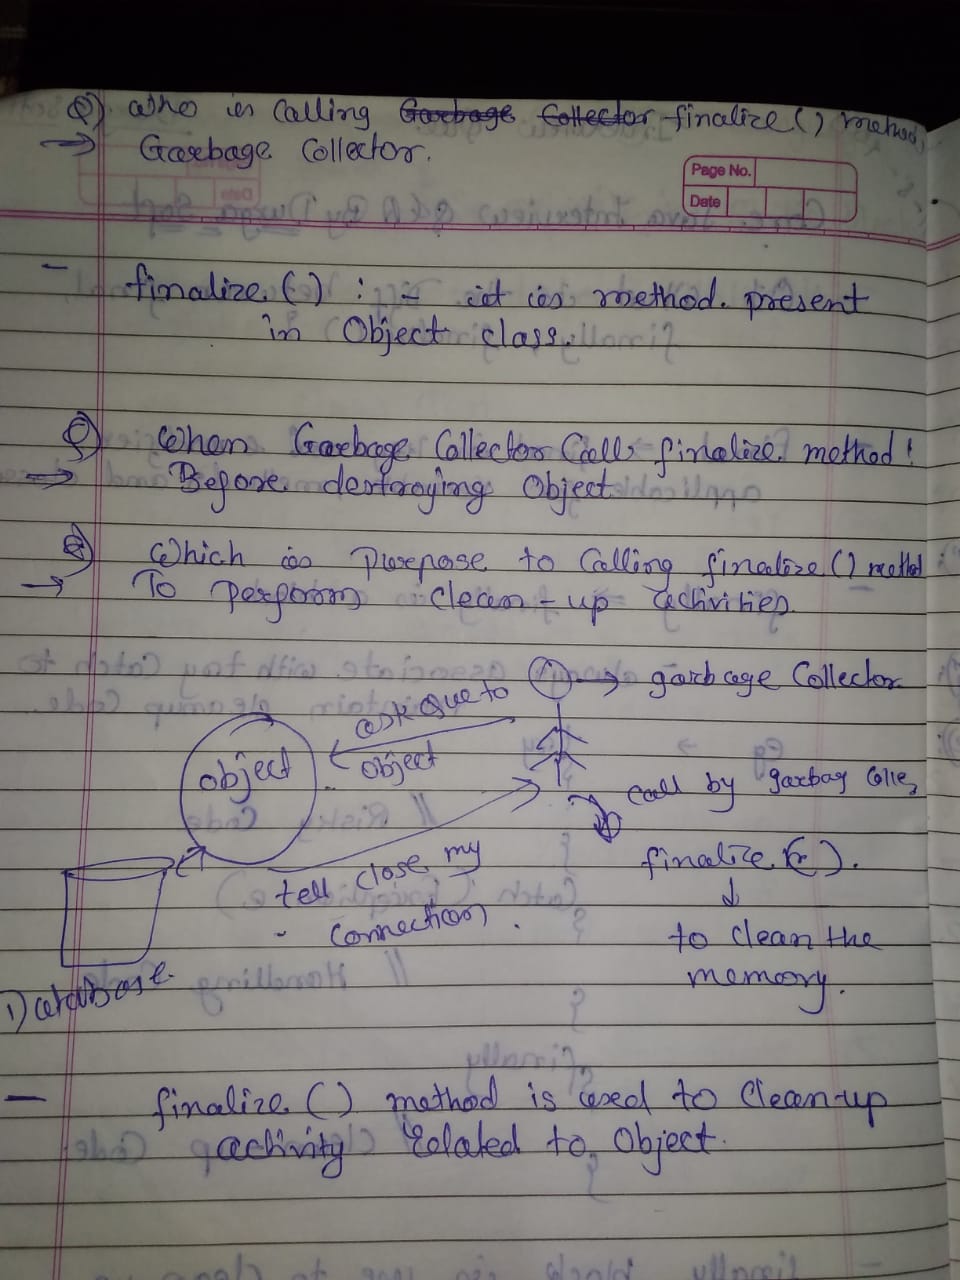 Q) Who is Calling Garbage Collector finalize() method
→ Garbage Collector.
Page No.
Date
- finalize() :- it is method present
in Object class.
Q) When Garbage Collector Calls finalize method?
→ Before destroying Object
Q) Which is Purpose to Calling finalize() method
→ To Perform clean-up activities.
ask que to
object
→ garbage Collector
object
call by garbag Colle,
tell close my
connection.
finalize().
↓
to clean the
memory.
Database.
- finalize() method is used to Clean-up
activity related to Object.